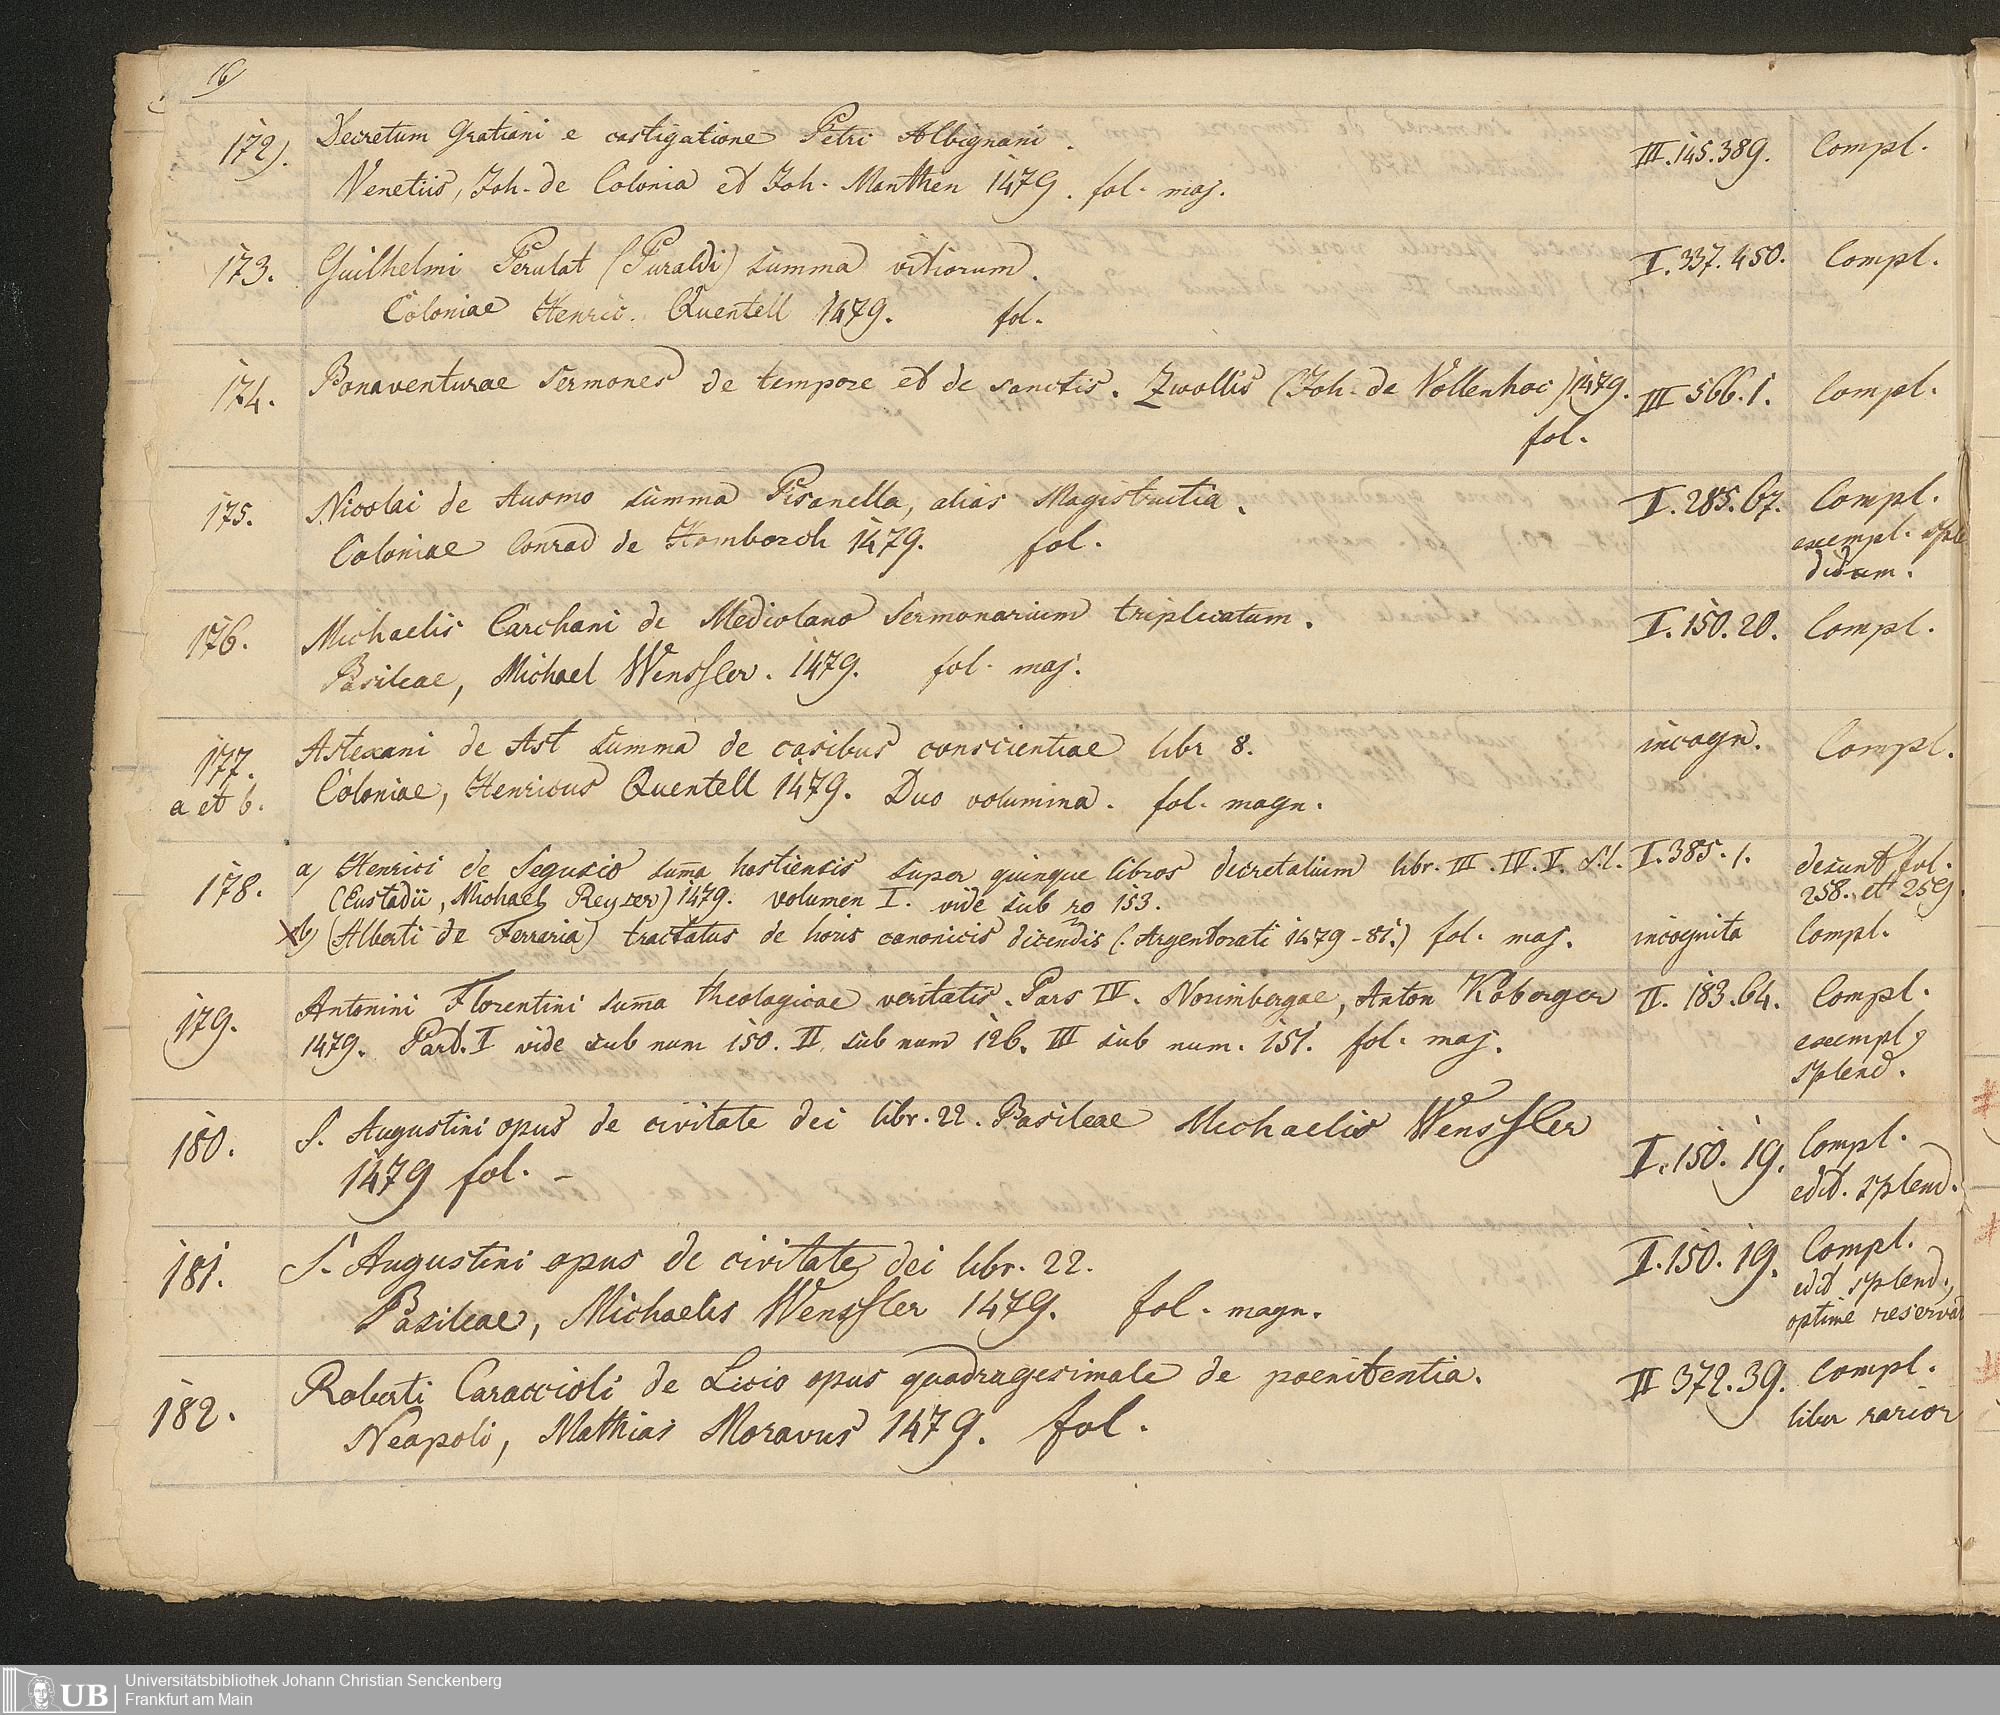 16)
172). Decretum Gratiani e castigatione Petri Albignani. III.145.389. Compl.
Venetiis, Joh. de Colonia et Joh. Manthen 1479. fol. maj.
173. Guilhelmi Perulat (Puraldi) summa vitiorum. I.337.450. Compl.
Coloniae Henric. Quentell 1479. fol.
174. Bonaventurae sermones de tempore et de sanctis. Zwollis (Joh. de Vollenhoe) 1479. III 566.1. Compl.
fol.
175. Nicolai de Ausmo summa Pisanella, alias Magistrutia. I.285.67. Compl.
Coloniae Conrad de Homborch 1479. fol. exempl. sple
didum.
176. Michaelis Carchani de Mediolano Sermonarium triplicatum. I.150.20. Compl.
Basileae, Michael Wenssler. 1479. fol. maj.
177. Astexani de Ast summa de casibus conscientiae libr 8. incogn. Compl.
a et b. Coloniae, Henricus Quentell 1479. Duo volumina. fol. magn.
178. a) Henrici de Segusio sum̄a hostiensis super quinque libros decretalium libr. III. IV. V. S.l. I.385.1. desunt fol.
(Eustadii, Michael Reyser) 1479. volumen I. vide sub no 153. 258. et 259.
b) (Alberti de Ferraria) tractatus de horis canonicis dicendis (Argentorati 1479-81.) fol. maj. incognita Compl.
179. Antonini Florentini sum̄a theologicae veritatis. Pars IV. Norimbergae, Anton Koberger II. 183.64. Compl.
1479. Part. I vide sub num 150. II. sub num 126. III sub num. 151. fol. maj. exempl.
splend.
180. S. Augustini opus de civitate dei libr. 22. Basileae Michaelis Wenssler I.150.19. Compl.
1479 fol. – edit. splend.
181. S. Augustini opus de civitate dei libr. 22. I.150.19. Compl.
Basileae, Michaelis Wenssler 1479. fol. magn. edit splend.,
optime reservat
182. Roberti Caraccioli de Licio opus quadragesimale de poenitentia. II 372.39. Compl.
Neapoli, Mathias Moravus 1479. fol. liber rarior
UB Universitätsbibliothek Johann Christian Senckenberg
Frankfurt am Main